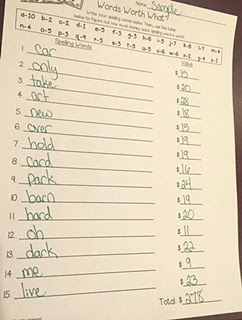 Name: Sample
Words Worth What?
Write your spelling words below. Then, use the table
below to figure out how much money each spelling word is worth.
a-10 b-2 c-2 d-1
n-4 o-5 p-3 q-9 r-3
Spelling Words Value
1. car $15
2. only $20
3. take $28
4. art $18
5. new $15
6. over $19
7. hold $19
8. card $16
9. park $24
10. barn $19
11. hard $20
12. oh $11
13. dark $22
14. me $9
15. live $23
Total: $278